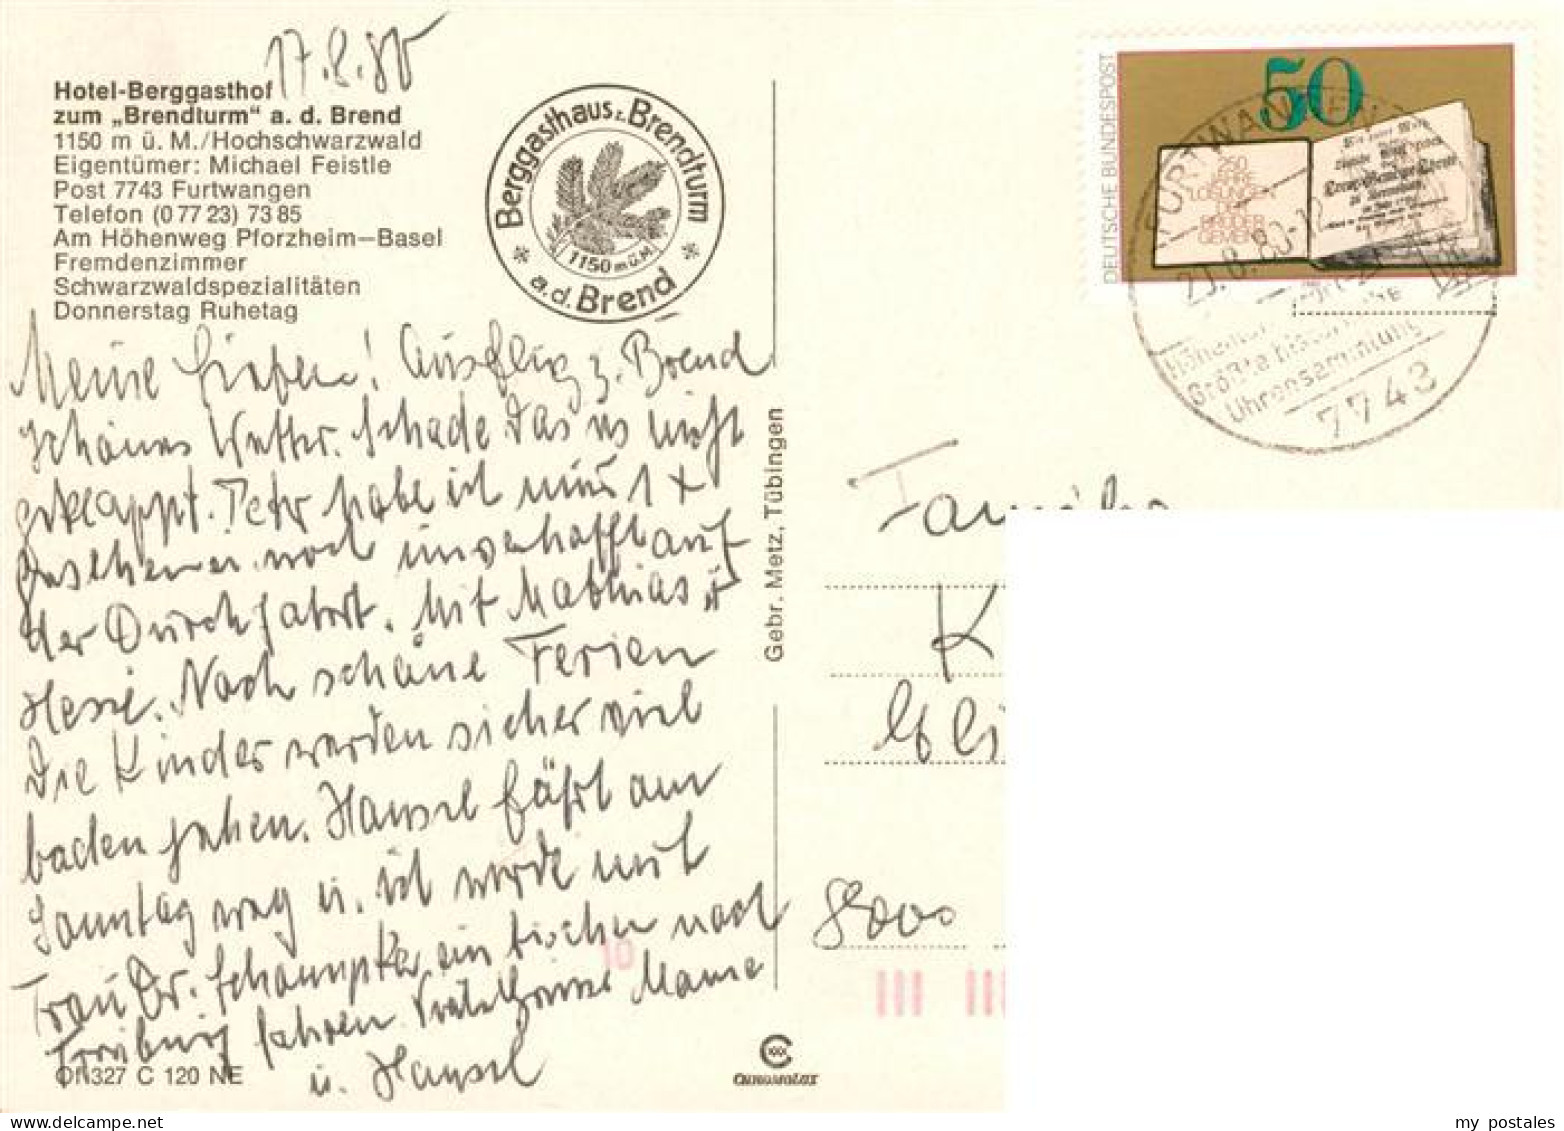 17.8.80
Hotel-Berggasthof
zum „Brendturm" a. d. Brend
1150 m ü. M./Hochschwarzwald
Eigentümer: Michael Feistle
Post 7743 Furtwangen
Telefon (0 77 23) 73 85
Am Höhenweg Pforzheim—Basel
Fremdenzimmer
Schwarzwaldspezialitäten
Donnerstag Ruhetag
Berggasthaus z. Brendturm
1150 m ü. M.
* a. d. Brend *
Meine Lieben! Ausflug z. Brend
schönes Wetter. Schade das es nicht
geklappt. Peter habe ich nur 1 x
gesehen noch unverhofft auf
der Durchfahrt. Mit Mathias u
Noch schöne Ferien
Die Kinder werden sicher viel
baden gehen. Hansel fährt am
Sonntag weg u. ich werde mit
Frau Dr. ein bischen nach
Freiburg fahren. Mama
u. Hansel
Of 327 C 120 NE
Gebr. Metz, Tübingen
CHROMOLUX
DEUTSCHE BUNDESPOST
50
250
JAHRE
LOSUNGEN
DER
BRÜDER
GEMEINE
FURTWANGEN
20.8.80
Größte histor
Uhrensammlung
7743
Familie
K
8000
10
my postales